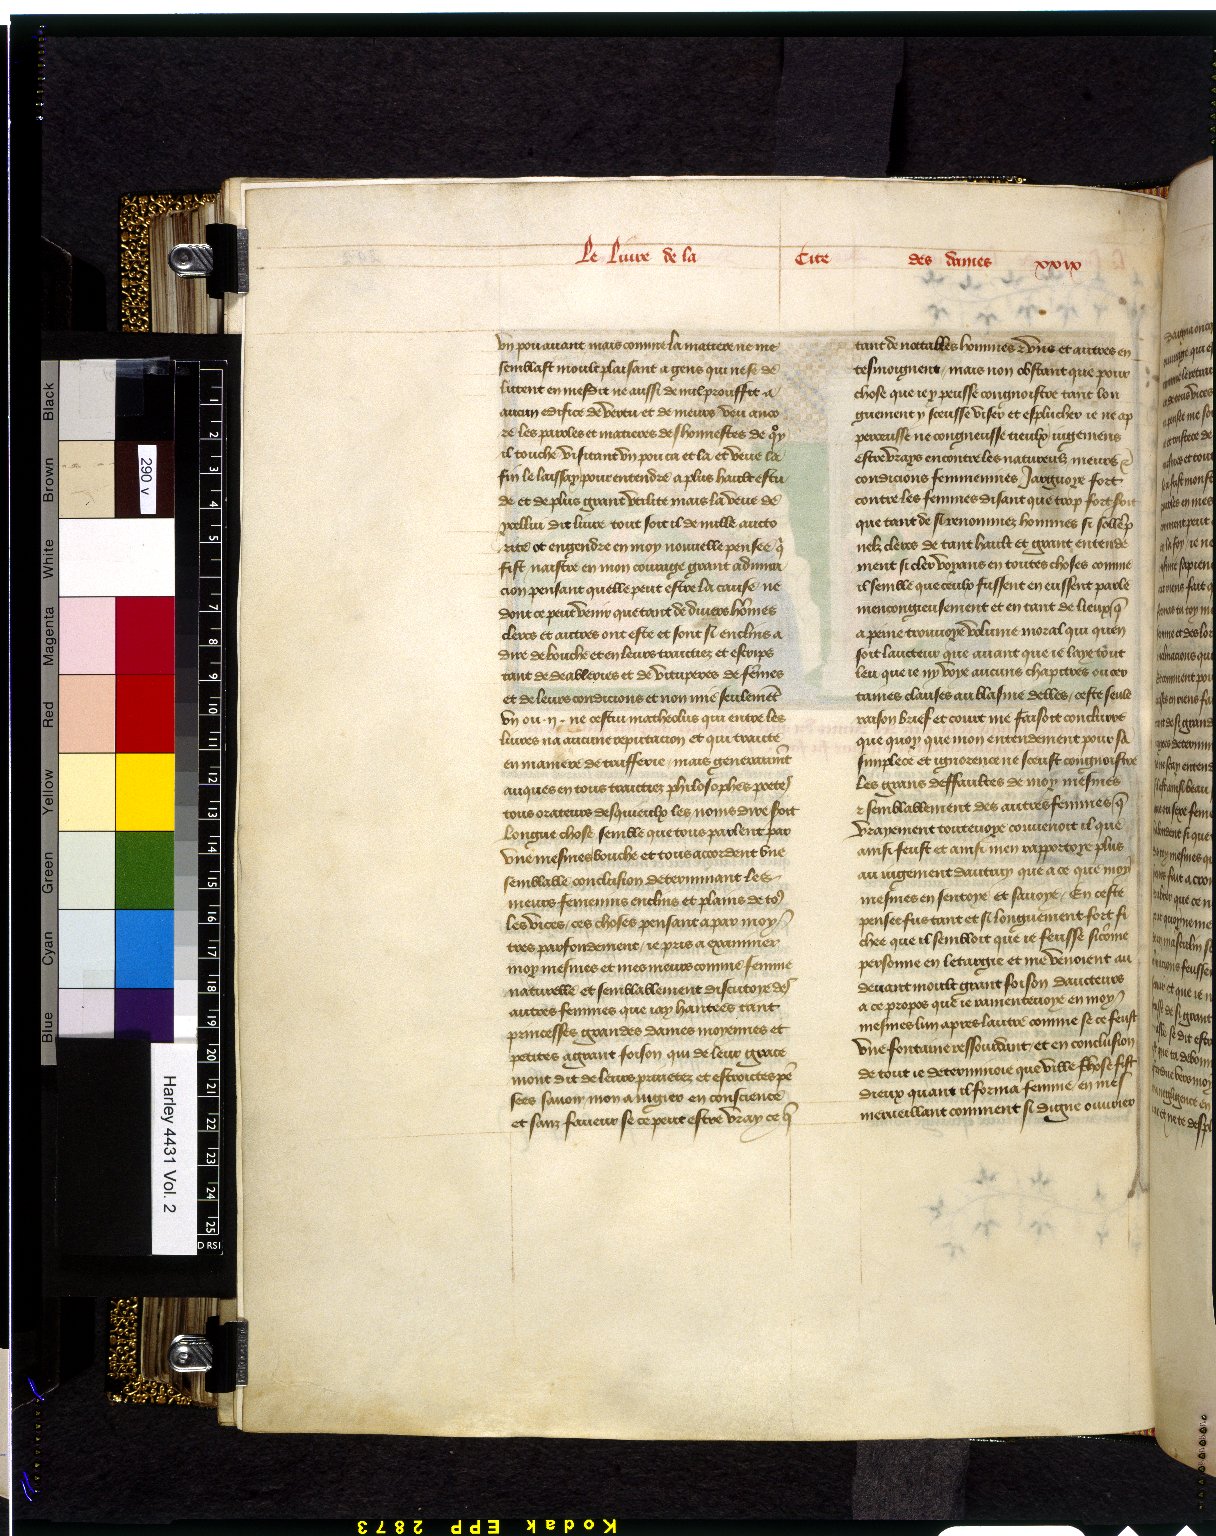 Le liure de la Cite des dames xxix
vn pou auant mais comme la matiere ne me
semblast moult plaisant a gens qui ne se de
litent en mesdit ne aussi de nul prouffit a
aucun edifice de vertu et de meurs veu enco
re les paroles et matieres deshonnestes de quoy
il touche visitant vn pou ca et la et veue la
fin le laissay pour entendre a plus hault estu
de et de plus grant vtilite mais la veue de
ycellui dit liure tout soit il de nulle aucto
rite ot engendre en moy nouuelle pensee qui
fist naistre en mon courage grant admira
cion pensant quelle peut estre la cause ne
dont ce peut venir que tant de diuers hommes
clercs et autres ont este et sont si enclins a
dire de bouche et en leurs traictiez et escrips
tant de deableries et de vituperes de femmes
et de leurs condicions et non mie seulement
vn ou .ij. ne cestui matheolus qui entre les
liures na aucune reputacion et qui traicte
en maniere de trufferie mais generaument
auques en tous traictiez philosophes poetes
tous orateurs desquieulx les noms dire soit
longue chose semble que tous parlent par
vne mesmes bouche et tous accordent vne
semblable conclusion determinant les
meurs femenins enclins et plains de tous
les vices / ces choses pensant a par moy /
tres parfondement / ie pris a examiner
moy mesmes et mes meurs comme femme
naturelle et semblablement discutoye des
autres femmes que iay hantees tant
princesses grandes dames moyennes et
petites a grant foison qui de leur grace
mont dit de leurs priuetez et estroictes pen
sees sauoir mon a iugier en conscience
et sanz faueur se ce peut estre vray ce que
tant de nottables hommes et vns et autres en
tesmoignent / mais non obstant que pour
chose que ie y peusse congnoistre tant lon
guement y sceusse viser et esplucher ie ne ap
perceusse ne congneusse tieulx iugemens
estre vrays encontre les natureulz meurs et
condicions femmenines Jarguoye fort
contre les femmes disant que trop fort soit
que tant de si renommez hommes si sollemp
nelz clercs de tant hault et grant entende
ment si cler voyans en toutes choses comme
il semble que ceulx fussent en eussent parle
mencongieusement et en tant de lieux que
a peine trouuoye volume moral qui quen
soit laucteur que auant que ie laye tout
leu que ie ny voye aucuns chapitres ou cer
taines clauses au blasme delles / ceste seule
raison brief et court me faisoit conclurre
que quoy que mon entendement pour sa
simplece et ignorence ne sceust congnoistre
les grans deffaultes de moy mesmes
et semblablement des autres femmes que
vrayement touteuoye conuenoit il que
ainsi feust et ainsi men rapportoye plus
au iugement dautruy que a ce que moy
mesmes en sentoye et sauoye / En ceste
pensee fus tant et si longuement fort fi
chee que il sembloit que ie feusse si comme
personne en letargie et me venoient au
deuant moult grant foison daucteurs
a ce propos que ie ramenteuoye en moy
mesmes lun apres lautre comme se ce feust
vne fontaine ressourdant / et en conclusion
de tout ie determinoie que ville chose fist
dieux quant il forma femme / en mes
merueillant comment si digne ouurier
Black
Brown
White
Magenta
Red
Yellow
Green
Cyan
Blue
290 v
1 2 3 4 5 7 8 9 10 11 12 13 14 15 16 17 18 19 20 21 22 23 24 25
D RSI
Harley 4431 Vol. 2
Kodak EPP 2873